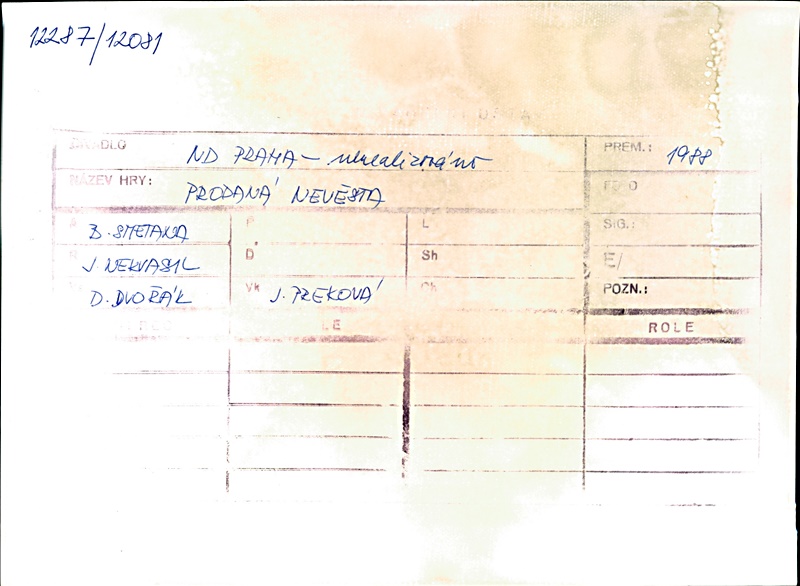 12287/12081
DIVADLO ND PRAHA – nerealizováno PREM.: 1988
NÁZEV HRY: PRODANÁ NEVĚSTA FOTO
A B. SMETANA P L SIG.:
R J. NEKVASIL D Sh E/
D. DVOŘÁK Vk J. PREKOVÁ Ch POZN.:
ROLE